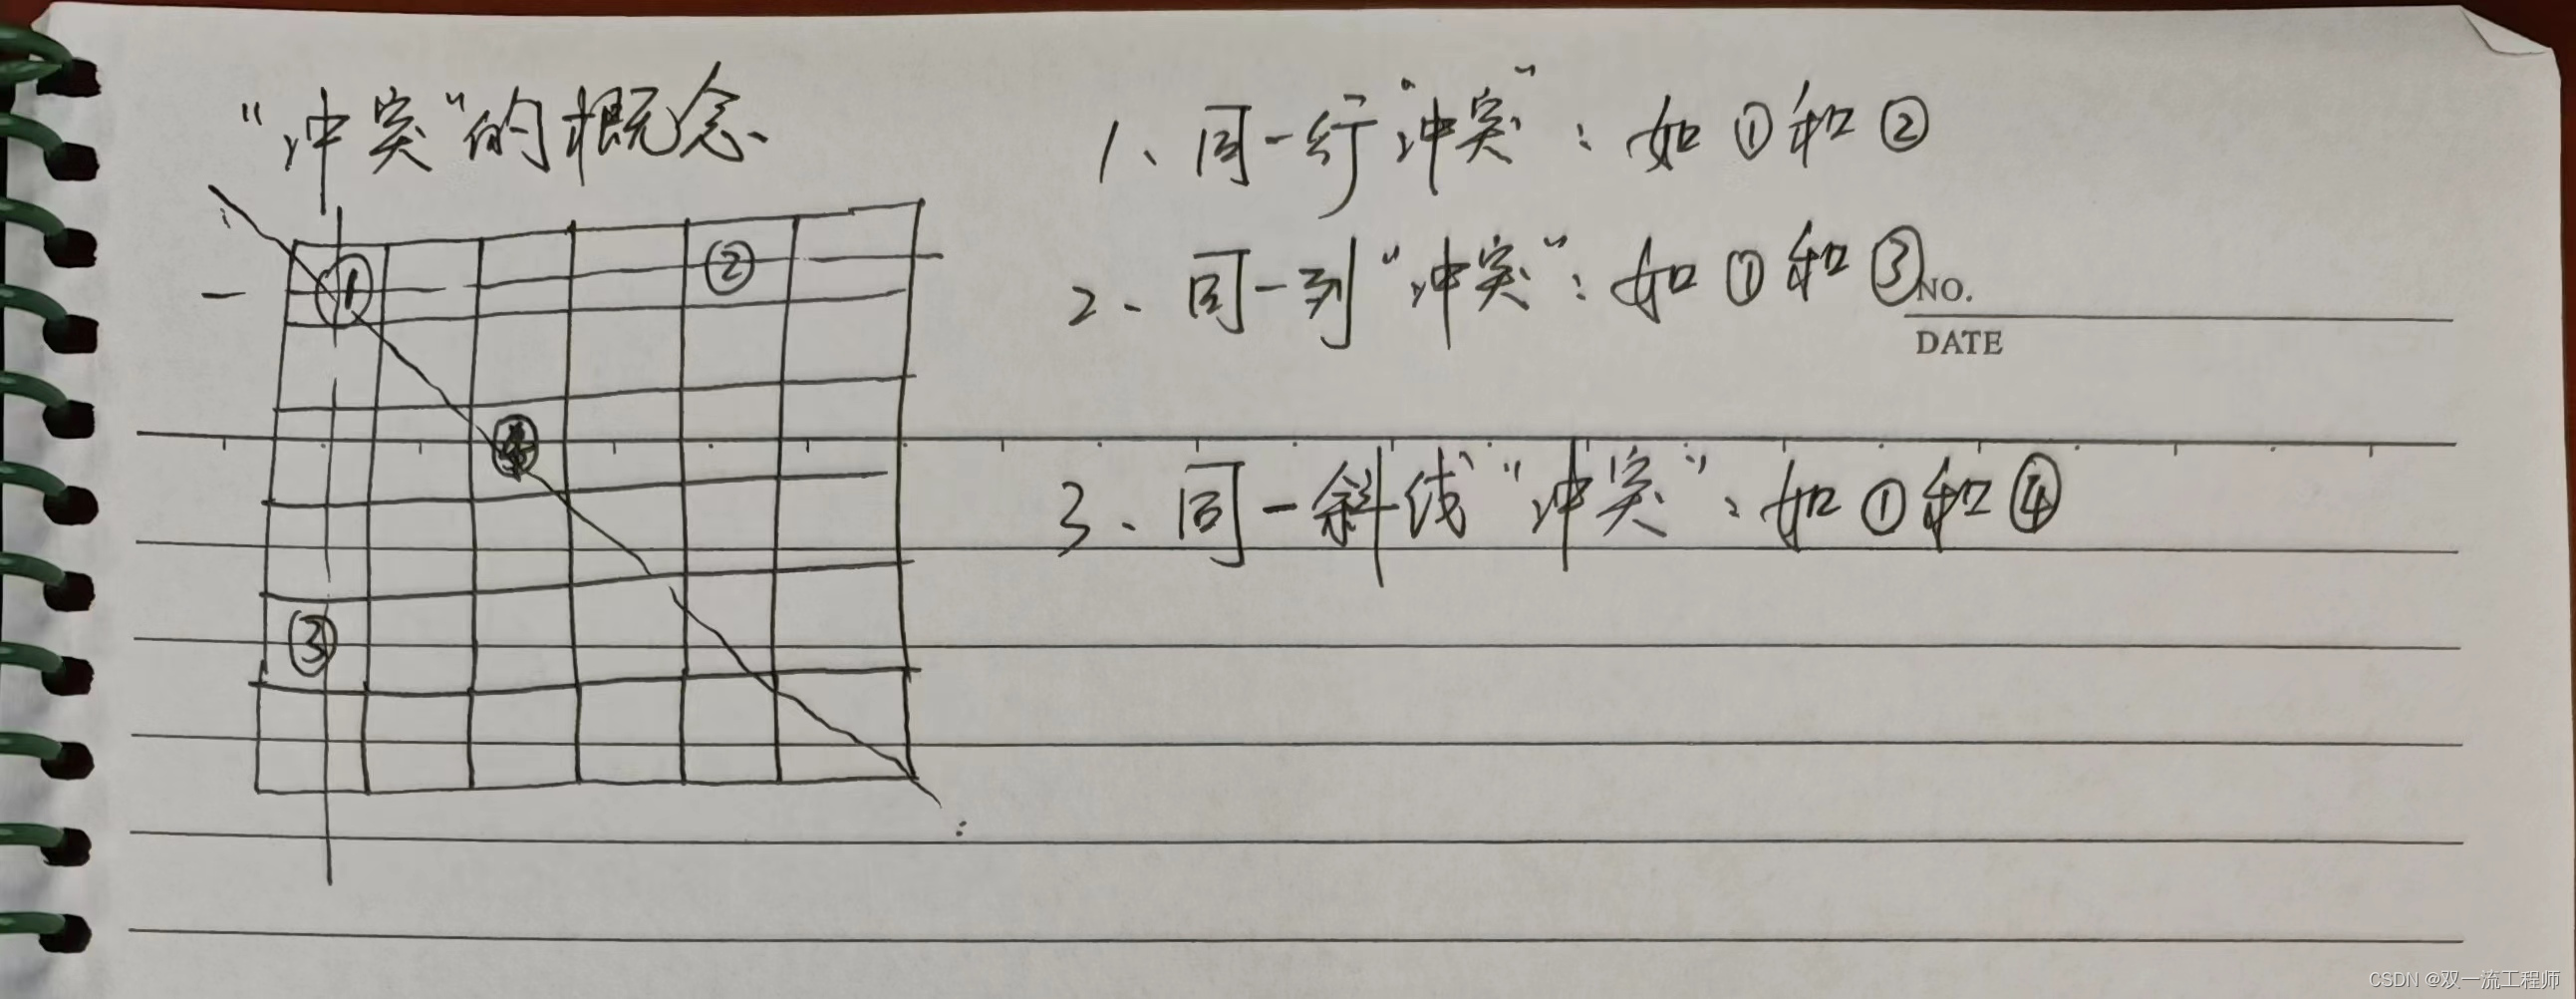 "冲突"的概念
1、同一行"冲突"：如①和②
2、同一列"冲突"：如①和③
NO.
DATE
3、同一斜线"冲突"：如①和④
①
②
③
CSDN @双一流工程师